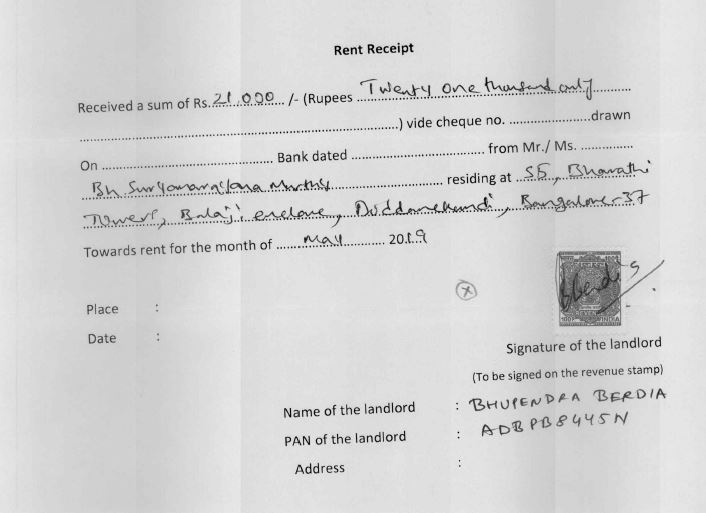 Rent Receipt
Received a sum of Rs. 21,000 /- (Rupees Twenty one thousand only
) vide cheque no. drawn
On Bank dated from Mr./ Ms.
Bh Suryanarayana Murthy residing at S5, Bharathi
Towers, Balaji enclave, Doddanekundi, Bangalore-37
Towards rent for the month of May 2019
Place :
Date :
Signature of the landlord
(To be signed on the revenue stamp)
Name of the landlord : BHUPENDRA BERDIA
PAN of the landlord : ADBPB8445N
Address :